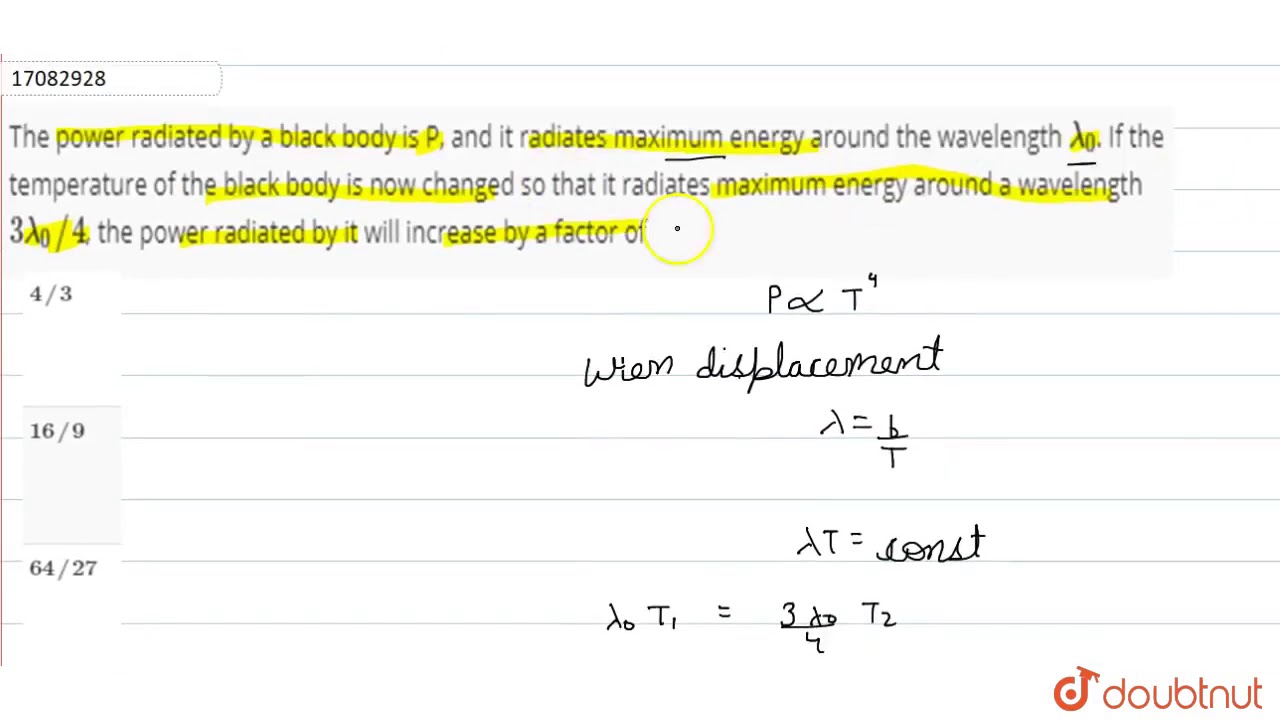 17082928
The power radiated by a black body is P, and it radiates maximum energy around the wavelength λ₀. If the
temperature of the black body is now changed so that it radiates maximum energy around a wavelength
3λ₀/4, the power radiated by it will increase by a factor of
4/3
P ∝ T⁴
Wien displacement
λ = b/T
16/9
λT = const
64/27
λ₀ T₁ = 3λ₀/4 T₂
doubtnut